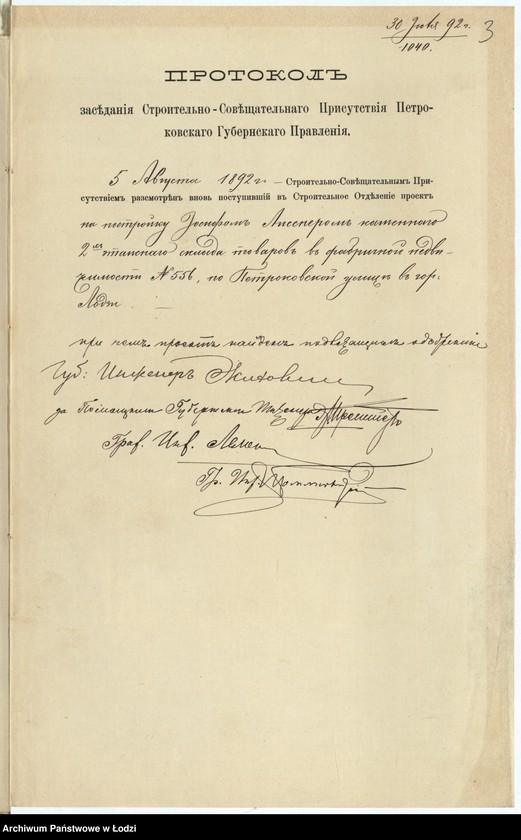 30 Іюня 92 г.
1040.
3
ПРОТОКОЛЪ
засѣданія Строительно-Совѣщательнаго Присутствія Петро-
ковскаго Губернскаго Правленія.
5 Августа 1892 г. — Строительно-Совѣщательнымъ При-
сутствіемъ разсмотрѣнъ вновь поступившій въ Строительное Отдѣленіе проектъ
на постройку Іосифомъ каменнаго
2хъ этажнаго склада товаровъ въ фабричной недви-
жимости № 556, по Петроковской улицѣ въ гор.
Лодзи.
при чемъ проектъ найденъ подлежащимъ одобренію
Губ: Инженеръ
за Помощника Губернскаго Инженера
Граж. Инж.
Гр. Инж.
Archiwum Państwowe w Łodzi